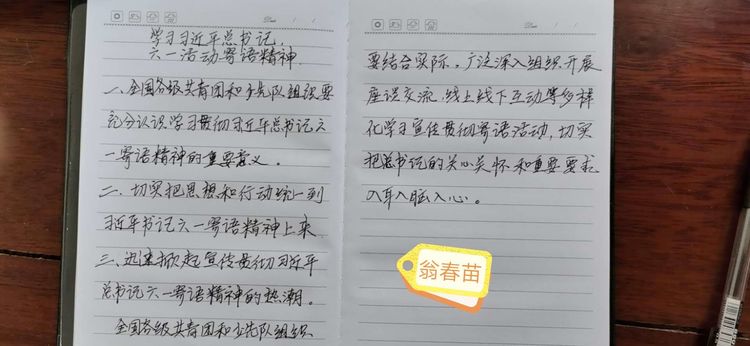 学习习近平总书记,
六一活动寄语精神.
一、全国各级共青团和少先队组织要
充分认识学习贯彻习近平总书记六
一寄语精神的重要意义。
二、切实把思想和行动统一到
习近平书记六一寄语精神上来
三、迅速掀起宣传贯彻习近平
总书记六一寄语精神的热潮。
全国各级共青团和少先队组织
要结合实际。广泛深入组织开展
座谈交流,线上线下互动等多样
化学习宣传贯彻寄语活动,切实
把总书记的关心关怀和重要要求
入耳入脑入心。
翁春苗